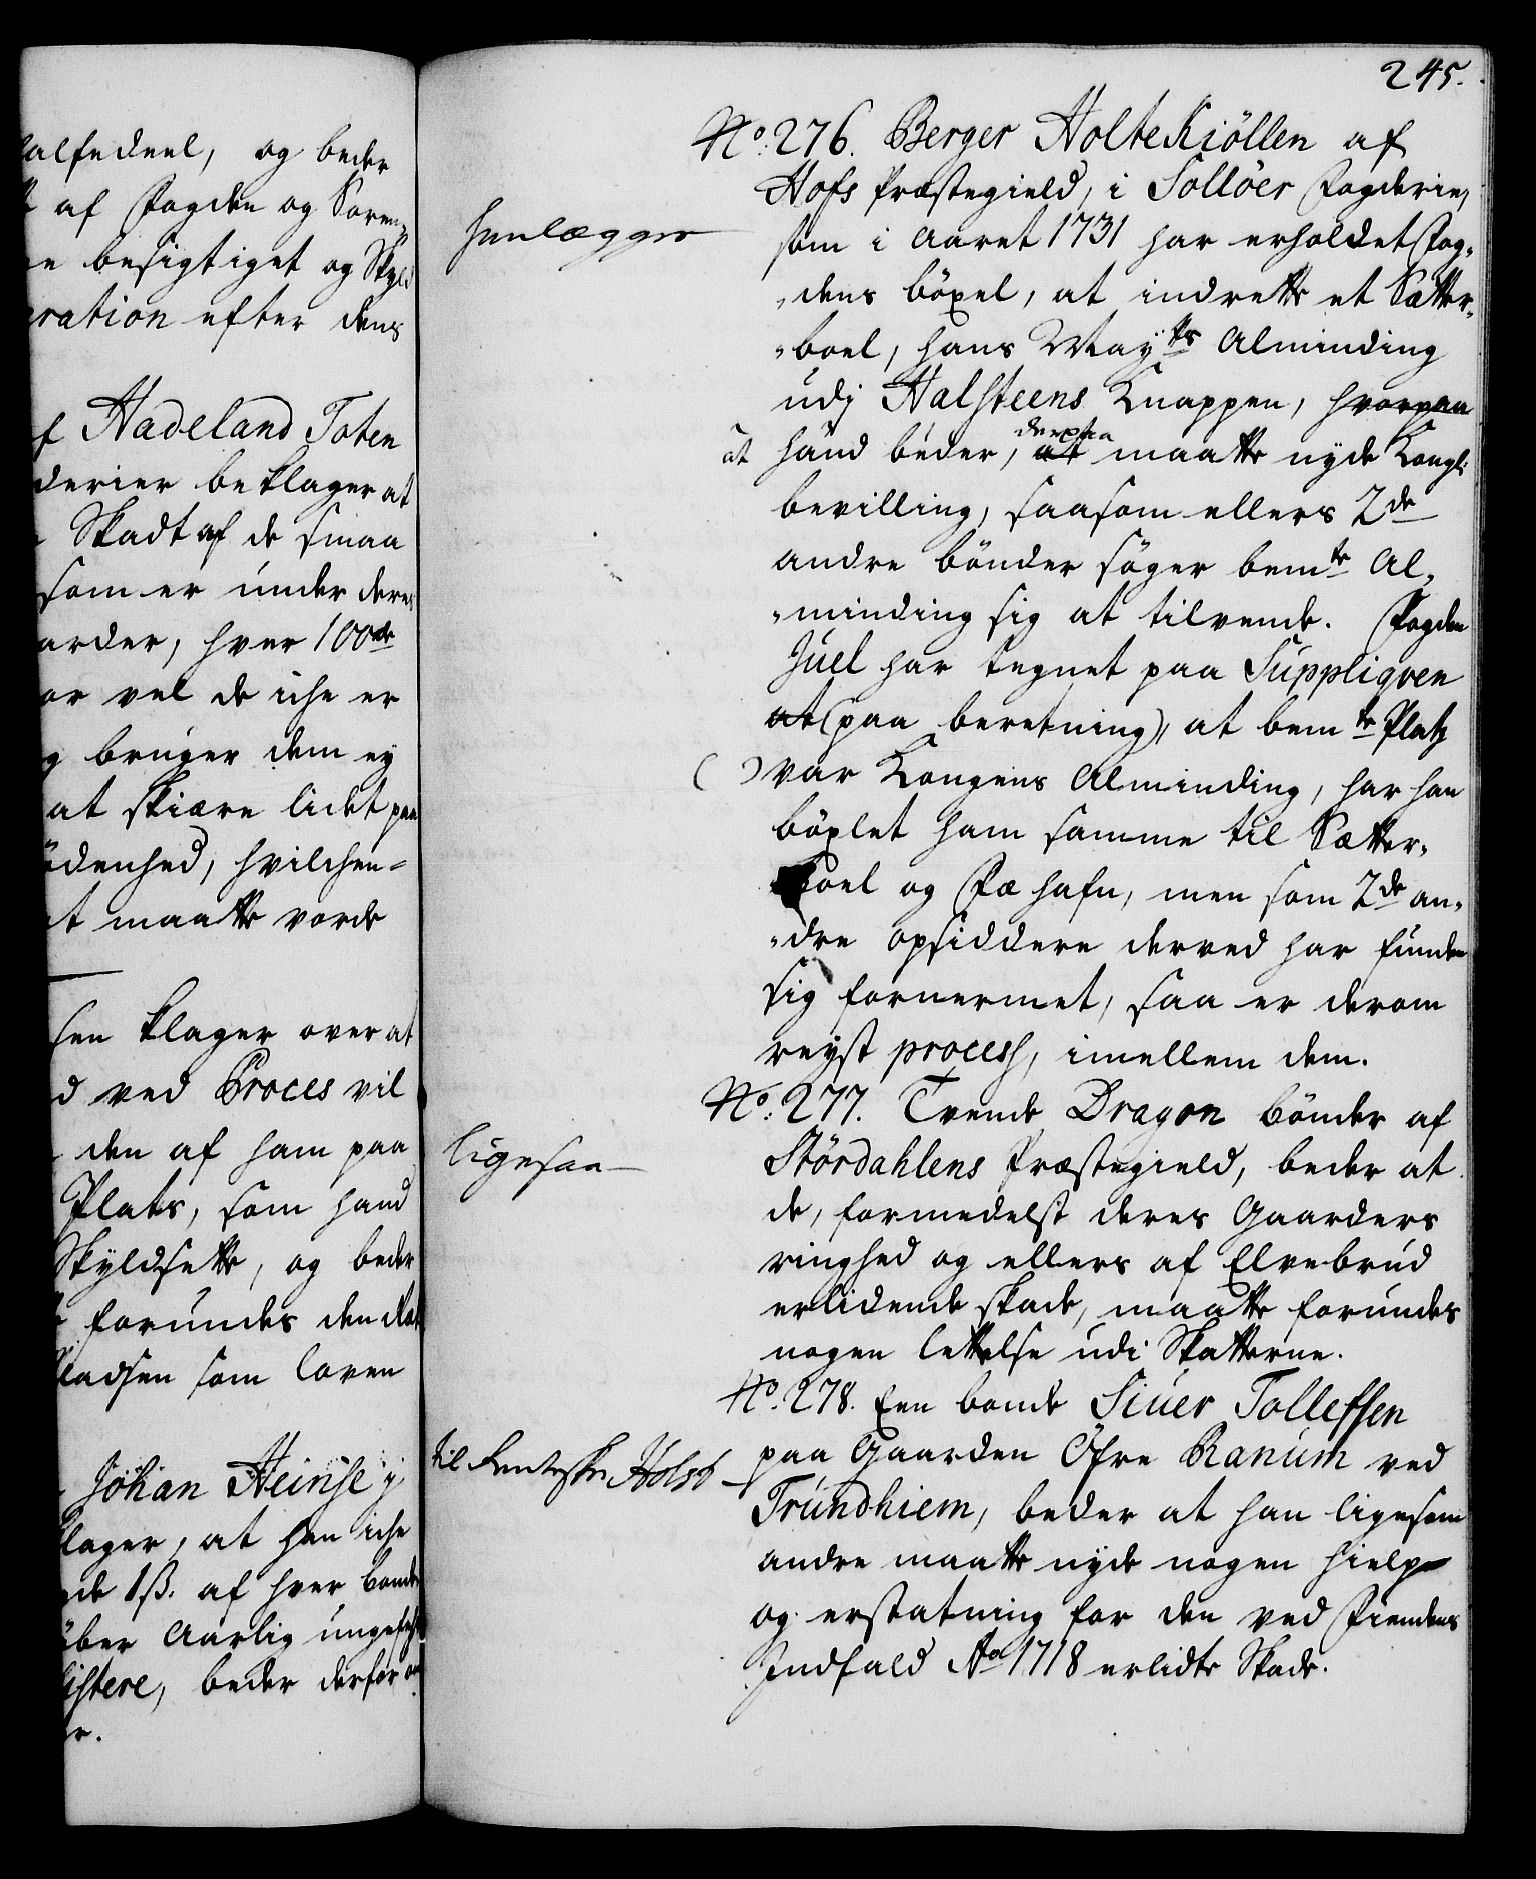 245.
alfedeel, og beder
af Fogden og Soren-
besigtiget og Skyld
ration efter dens
Hadeland Toten
derier beklager at
Skadt af de smaa
som er under deres
arder, hver 100de
or vel de iche er
bruger dem ey
at skiære lidet paa
ödenhed, hvilchen-
maatte vorde
sen klager over at
ved Proces vil
den af ham paa
Plats, som hand
Skyldsette, og beder
forundes den
ladsen som loven
Johan Heinse
lager, at han iche
de 1ß. af hver bonde
über aarlig ungefehr
istere, beder derfor
er.
No: 276. Berger HolteKiöllen af
Hofs Præstegield, i Sollöer Fogderie,
henlægges
som i Aaret 1731 har erholdet Fog-
-dens böxel, at indrette et Sætter-
-boel, hans Mayts Alminding
udj Halsteens Knappen, hvorpaa
at hand beder, at derpaa maatte nyde Kongl:
bevilling, saasom ellers 2de
andre bönder söger bemte Al-
-minding sig at tilvende. Fogden
Juel har tegnet paa Suppliqven
at (paa beretning), at bemte Platz
( ) var Kongens Alminding, har han
böxlet ham samme til Sætter-
-boel og Fæ hafn, men som 2de an-
-dre opsiddere derved har funden
sig fornermet, saa er derom
reyst process, imellem dem.
No: 277. Tvende Dragon bönder af
ligesaa
Stördahlens Præstegield, beder at
de, formedelst deres Gaarders
ringhed og ellers af Elvebrud
erlidende skade, maatte forundes
nogen lettelse udi Skatterne.
No. 278. Een bonde Siuer Tolleffsen
til Renteskr Holst
paa Gaarden Öfre Ranum ved
Trundhiem, beder at han ligesom
andre maatte nyde nogen hielp
og erstatning for den ved Fiendens
Indfald Ao 1718 erlidte Skade.